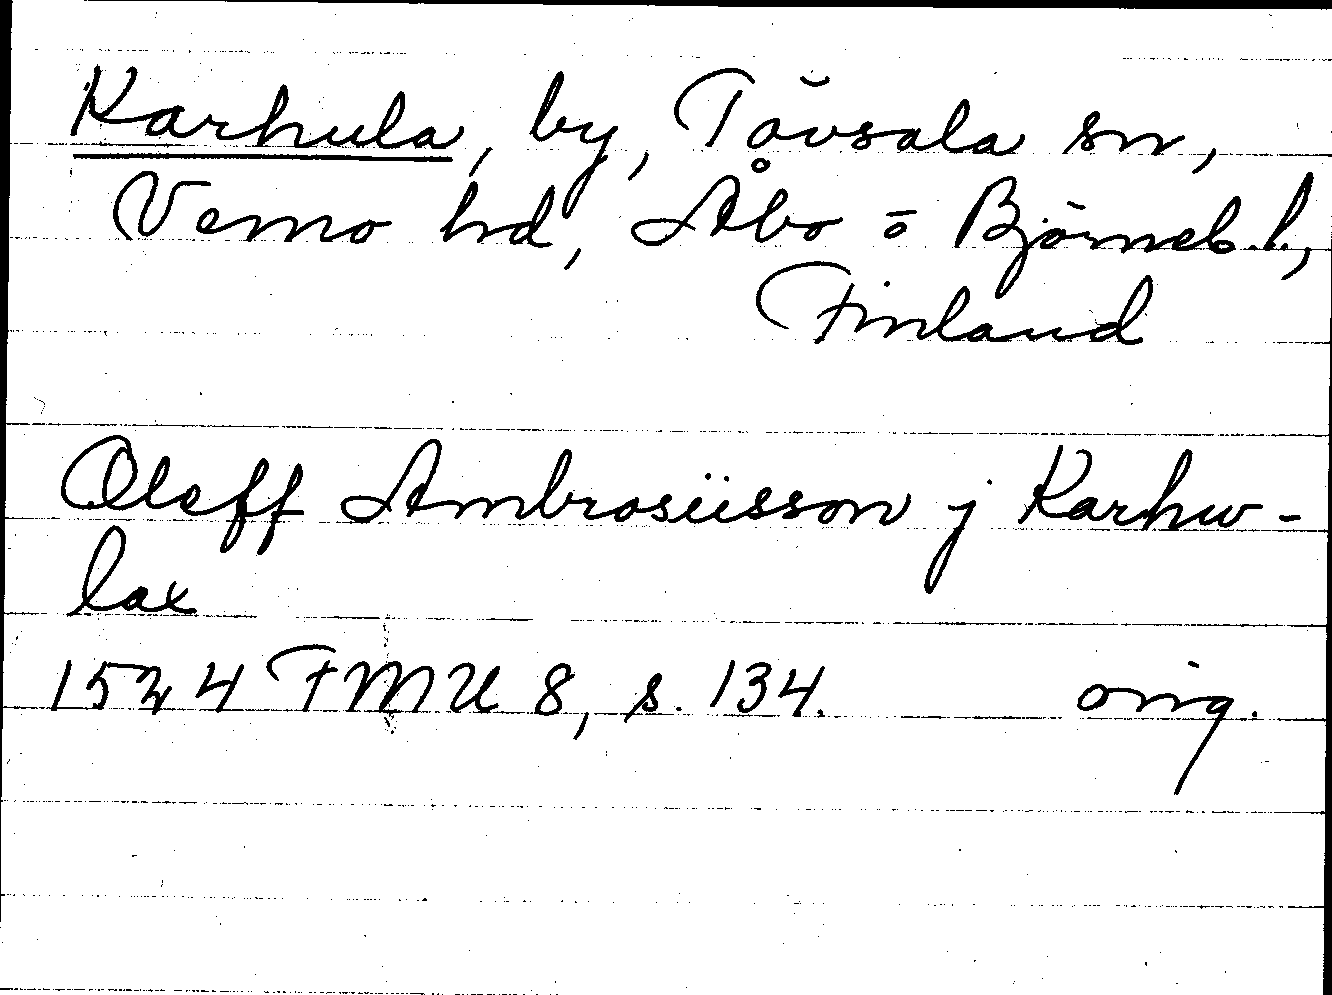 Karhula, by, Tövsala sn,
Vemo hd, Åbo o Björneb. l.,
Finland
Oleff Ambrosiisson j Karhw-
lax
1524 FMU 8, s. 134. orig.